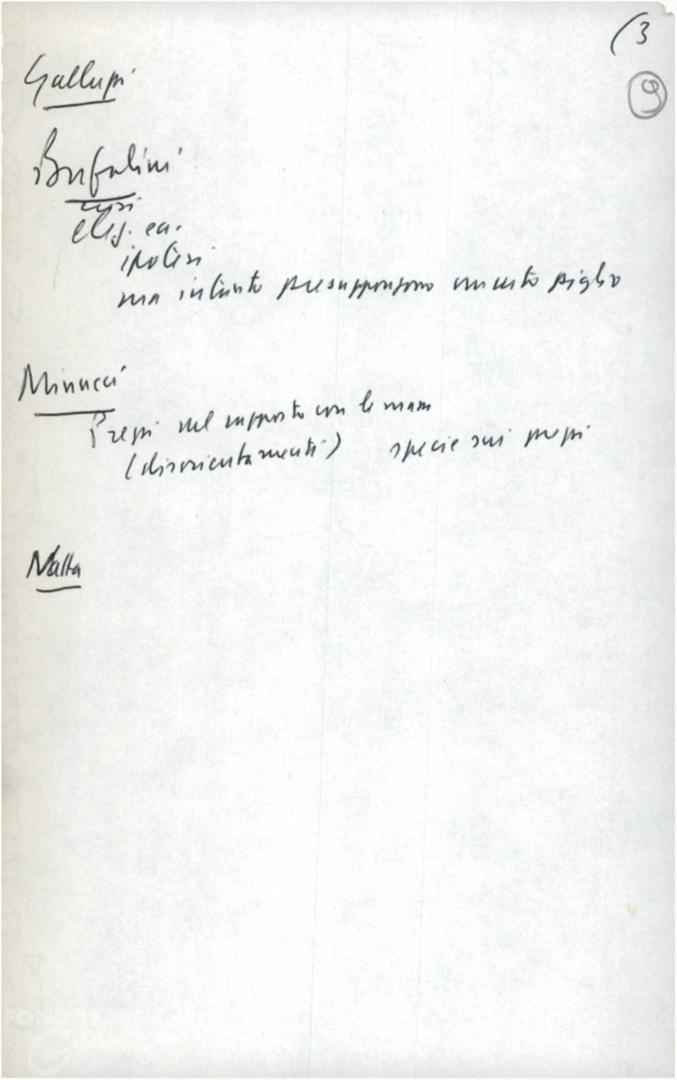 (3
9
Galluppi
Bufalini
crisi
elez. eu.
ipotesi
ma intanto presuppongono un certo piglio
Minucci
Prezzi nel rapporto con le masse
(disorientamenti) specie sui prezzi
Natta
FONDAZ